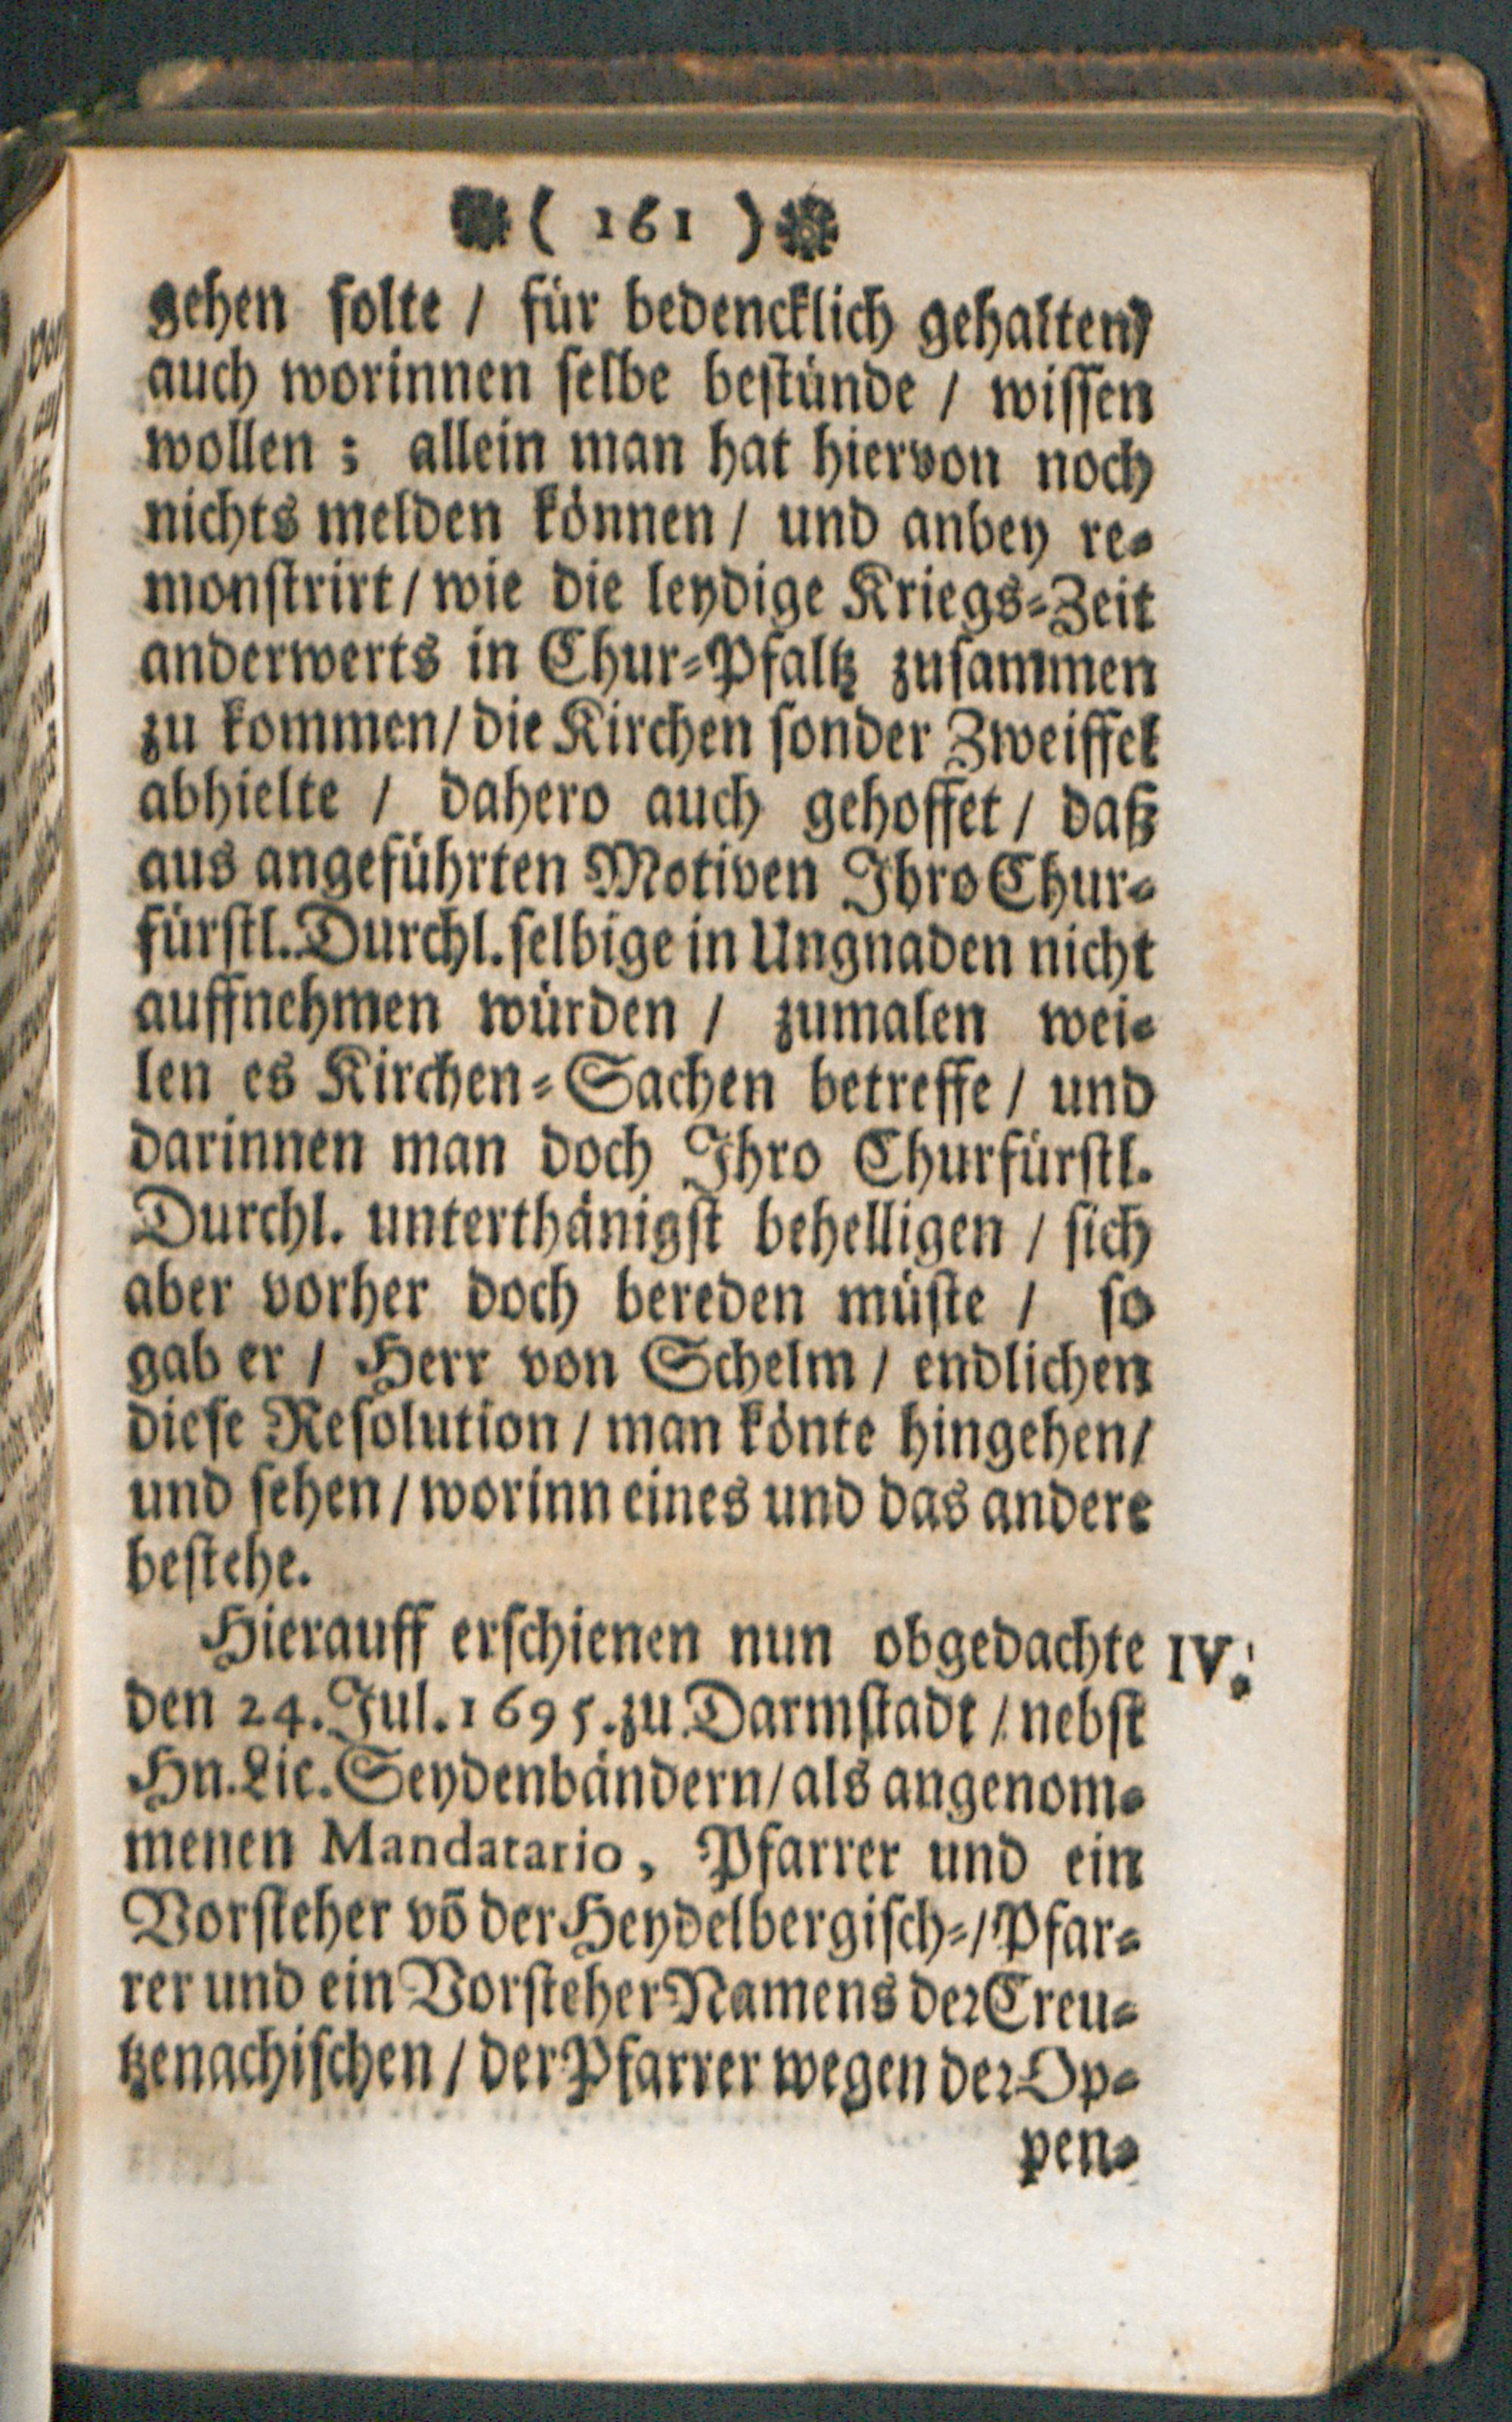 ( 161 )
gehen solte / für bedencklich gehalten /
auch worinnen selbe bestünde / wissen
wollen ; allein man hat hiervon noch
nichts melden können / und anbey re-
monstrirt / wie die leydige Kriegs-Zeit
anderwerts in Chur-Pfaltz zusammen
zu kommen / die Kirchen sonder Zweiffel
abhielte / dahero auch gehoffet / daß
aus angeführten Motiven Ihro Chur-
fürstl. Durchl. selbige in Ungnaden nicht
auffnehmen würden / zumalen wei-
len es Kirchen-Sachen betreffe / und
darinnen man doch Ihro Churfürstl.
Durchl. unterthänigst behelligen / sich
aber vorher doch bereden müste / so
gab er / Herr von Schelm / endlichen
diese Resolution / man könte hingehen /
und sehen / worinn eines und das andere
bestehe.
Hierauff erschienen nun obgedachte IV.
den 24. Jul. 1695. zu Darmstadt / nebst
Hn. Lic. Seydenbändern / als angenom-
menen Mandatario, Pfarrer und ein
Vorsteher võ der Heydelbergisch- / Pfar-
rer und ein Vorsteher Namens der Creu-
tzenachischen / der Pfarrer wegen der Op-
pen-